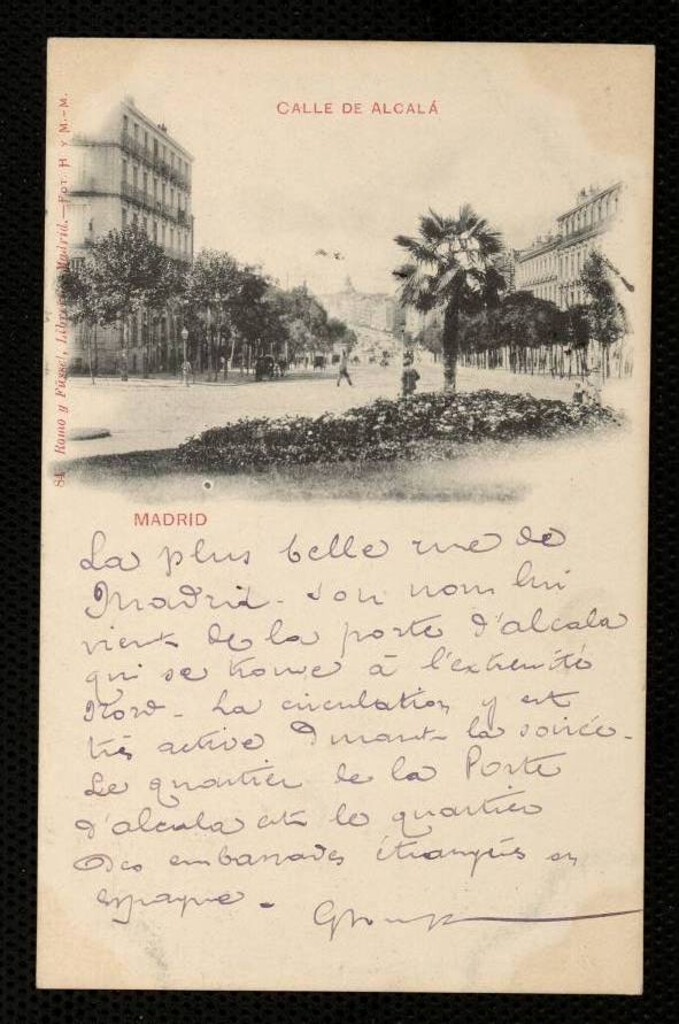 CALLE DE ALCALÁ
84 Romo y Füssel, Librería, Madrid.—Fot. H y M.-M.
MADRID
La plus belle rue de
Madrid - son nom lui
vient de la porte d'alcala
qui se trouve à l'extremité
Nord - La circulation y est
très active Durant la soirée -
Le quartier de la Porte
d'alcala est le quartier
Des embassades étrangères en
espagne -